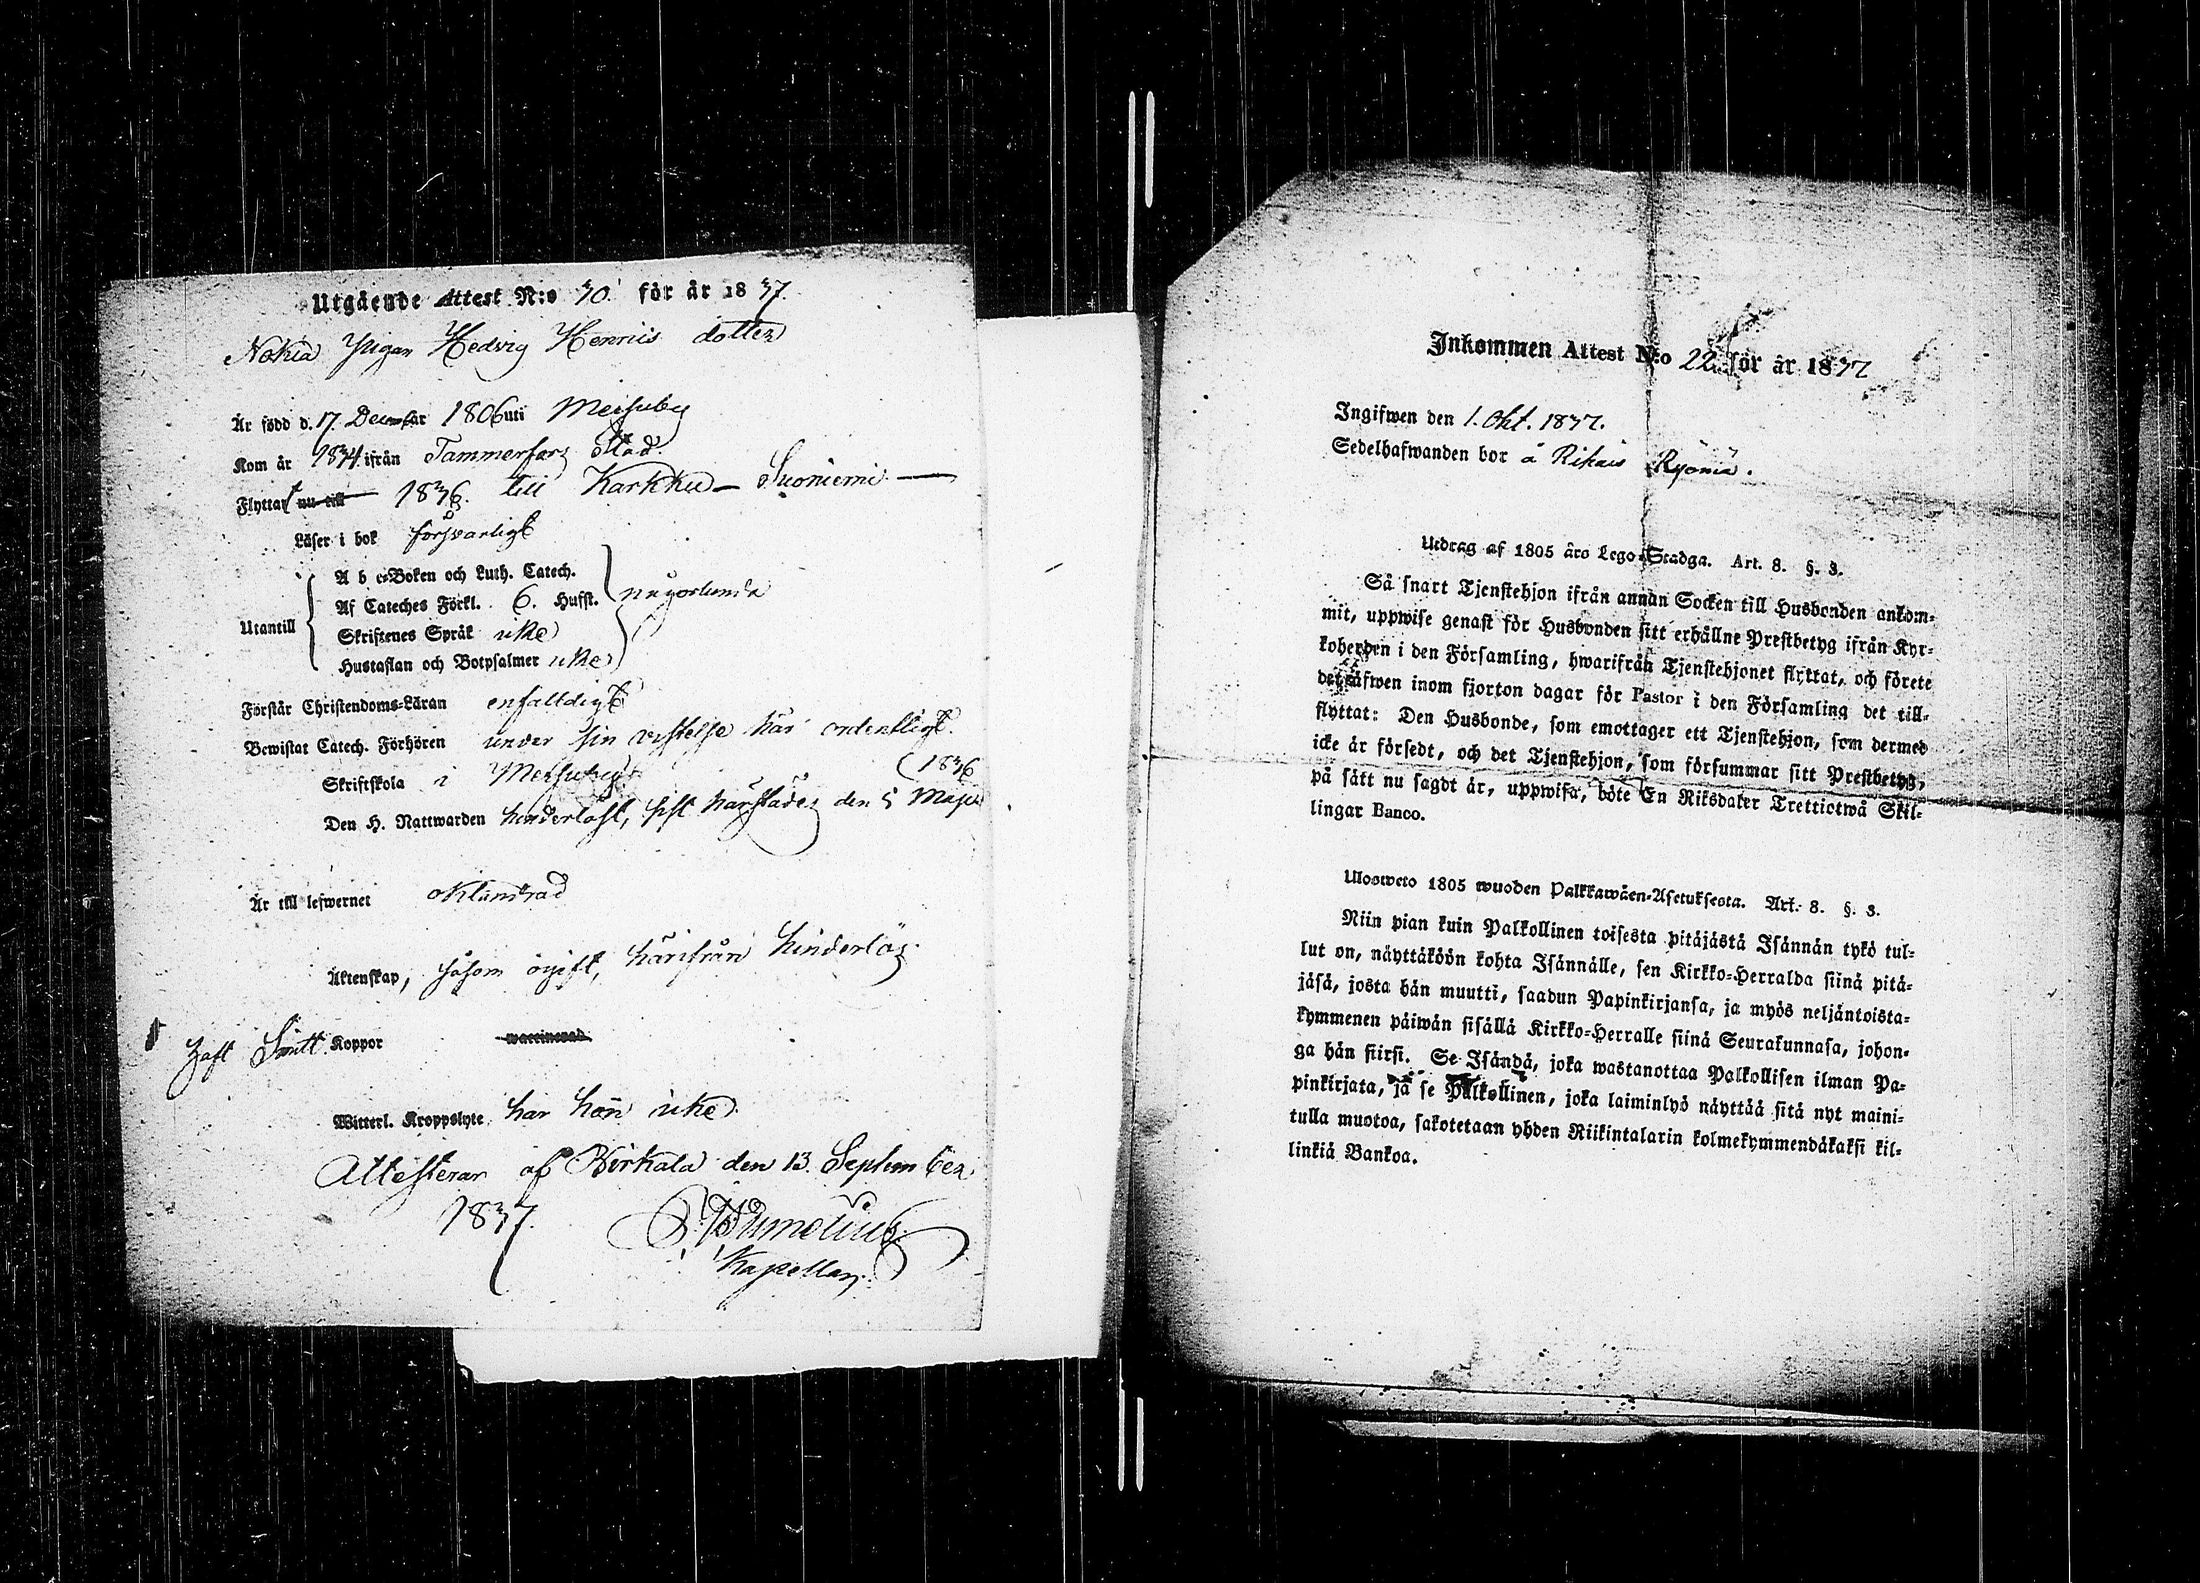 Utgående Attest N:o 30. för år 1837.
Nokia Pigan Hedvig Henriks dotter
Är född d. 17. December 1806 uti Messuby
Kom år 1834 ifrån Tammerfors Stad.
Flyttat nu till 1836. till Karkku – Suoniemi —
Läser i bok försvarligt
Utantill
A b c-Boken och Luth. Catech.
Af Cateches Förkl. 6. Hufst.
Skriftenes Språk icke
Hustaflan och Botpsalmer icke
någorlunda
Förstår Christendoms-Läran enfaldigt
Bewistat Catech. Förhören under sin vistelse här ordentligt.
Skriftskola i Messuby
(1836
Den H. Nattwarden hinderlöst, sist härstädes den 5 Maji
Är till lefwernet oklandrad
Äktenskap, såsom ogift, härifrån hinderlös.
Haft Smitt Koppor waccinerad
Witterl. Kroppslyte har hon icke
Attesterar af Birkala den 13. September
1837.
Kapellan.
Inkommen Attest N:o 22. för år 1837
Ingifwen den 1. Okt. 1837.
Sedelhafwanden bor å Rikais Ryömä.
Utdrag af 1805 års Lego-Stadga. Art. 8. §. 3.
Så snart Tjenstehjon ifrån annan Socken till Husbonden ankom-
mit, uppwise genast för Husbonden sitt erhållne Prestbetyg ifrån Kyr-
koherden i den Församling, hwarifrån Tjenstehjonet flyttat, och förete
det äfwen inom fjorton dagar för Pastor i den Församling det till-
flyttat: Den Husbonde, som emottager ett Tjenstehjon, som dermed
icke är försedt, och det Tjenstehjon, som försummar sitt Prestbetyg,
på sätt nu sagdt är, uppwisa, böte En Riksdaler Trettiotwå Skil-
lingar Banco.
Ulosweto 1805 wuoden Palkkawäen-Asetuksesta. Art. 8. §. 3.
Niin pian kuin Palkollinen toisesta pitäjästä Isännän tykö tul-
lut on, näyttäköön kohta Isännälle, sen Kirkko-Herralda siinä pitä-
jäsä, josta hän muutti, saadun Papinkirjansa, ja myös neljäntoista-
kymmenen päiwän sisällä Kirkko-Herralle siinä Seurakunnasa, johon-
ga hän siirsi. Se Isändä, joka wastanottaa Palkollisen ilman Pa-
pinkirjata, ja se Palkollinen, joka laiminlyö näyttää sitä nyt maini-
tulla muotoa, sakotetaan yhden Riikintalarin kolmekymmendäkaksi kil-
linkiä Bankoa.